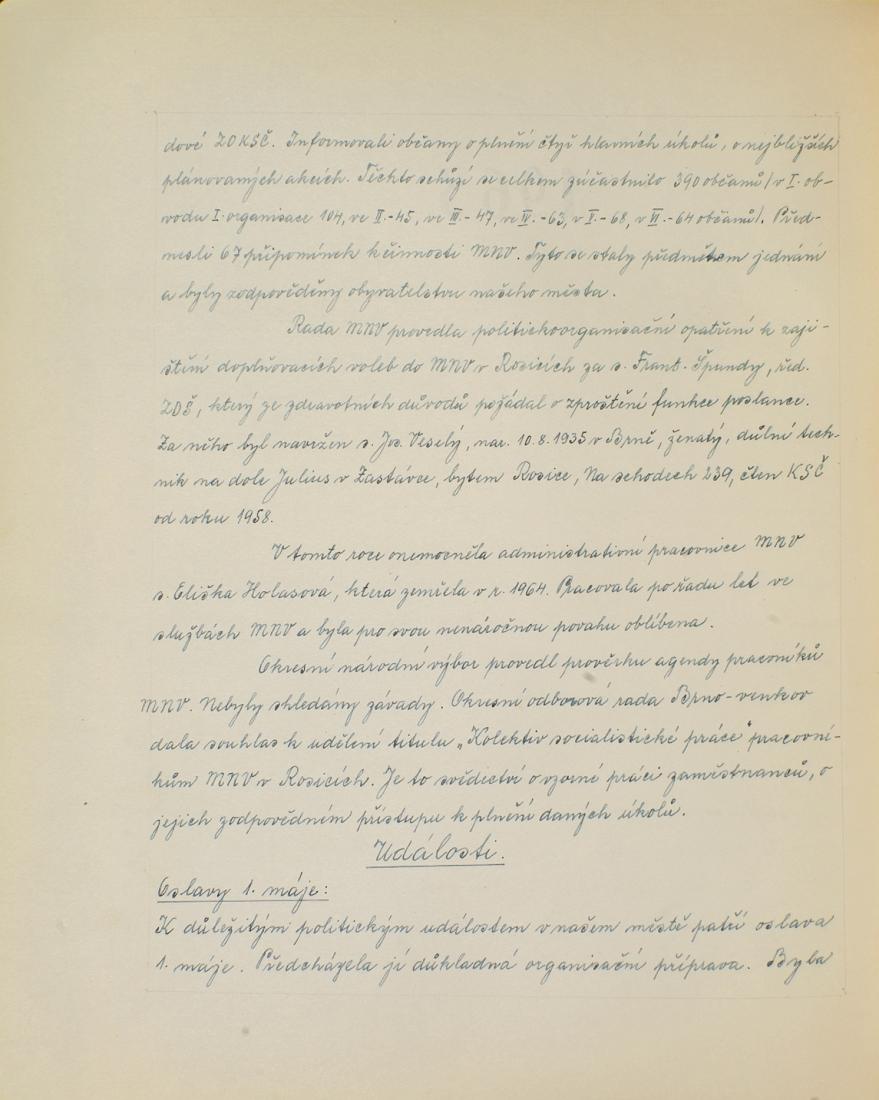 dové ZO KSČ. Informovali občany o plnění čtyř hlavních úkolů, o nejbližších
plánovaných akcích. Těchto schůzí se celkem zúčastnilo 390 občanů / v I. ob-
vodu I. organisace 104, ve II. - 45, ve III. - 47, ve IV. - 63, v V. - 68, v VI. - 64 občanů /. Před-
nesli 67 připomínek k činnosti MNV. Tyto se staly předmětem jednání
a byly zodpověděny obyvatelstvu našeho města.
Rada MNV provedla politickoorganisační opatření k zaji-
štění doplňovacích voleb do MNV v Rosicích za s. Frant. Špundy, řed.
ZDŠ, který ze zdravotních důvodů požádal o zproštění funkce poslance.
Za něho byl navržen s. Jos. Veselý, nar. 10. 8. 1935 v Brně, ženatý, důlní tech-
nik na dole Julius v Zastávce, bytem Rosice, Na schodech 239, člen KSČ
od roku 1958.
V tomto roce onemocněla administrativní pracovnice MNV
s. Eliška Holasová, která zemřela v r. 1964. Pracovala po řadu let ve
službách MNV a byla pro svou nenáročnou povahu oblíbena.
Okresní národní výbor provedl prověrku agendy pracovníků
MNV. Nebyly shledány závady. Okresní odborová rada Brno-venkov
dala souhlas k udělení titulu „Kolektiv socialistické práce" pracovní-
kům MNV v Rosicích. Je to svědectví o vzorné práci zaměstnanců, o
jejich zodpovědném přístupu k plnění daných úkolů.
Události.
Oslavy 1. máje:
K důležitým politickým událostem v našem městě patří oslava
1. máje. Předcházela jí důkladná organisační příprava. Byla